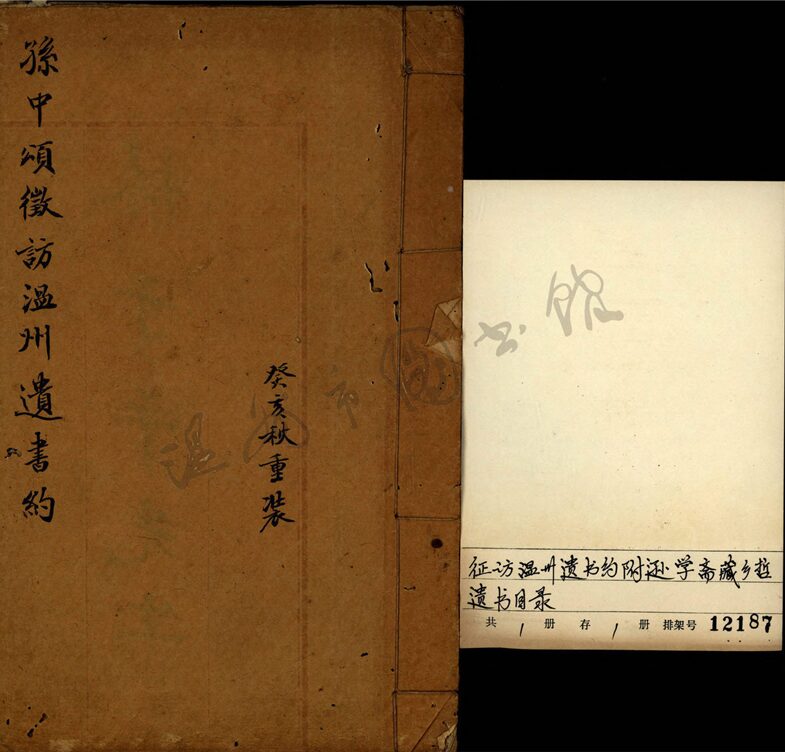 孫中頌徵訪温州遺書約
癸亥秋重裝
温州市图书馆
征访温州遗书约附逊学斋藏乡哲
遗书目录
共 1 册 存 1 册 排架号 12187